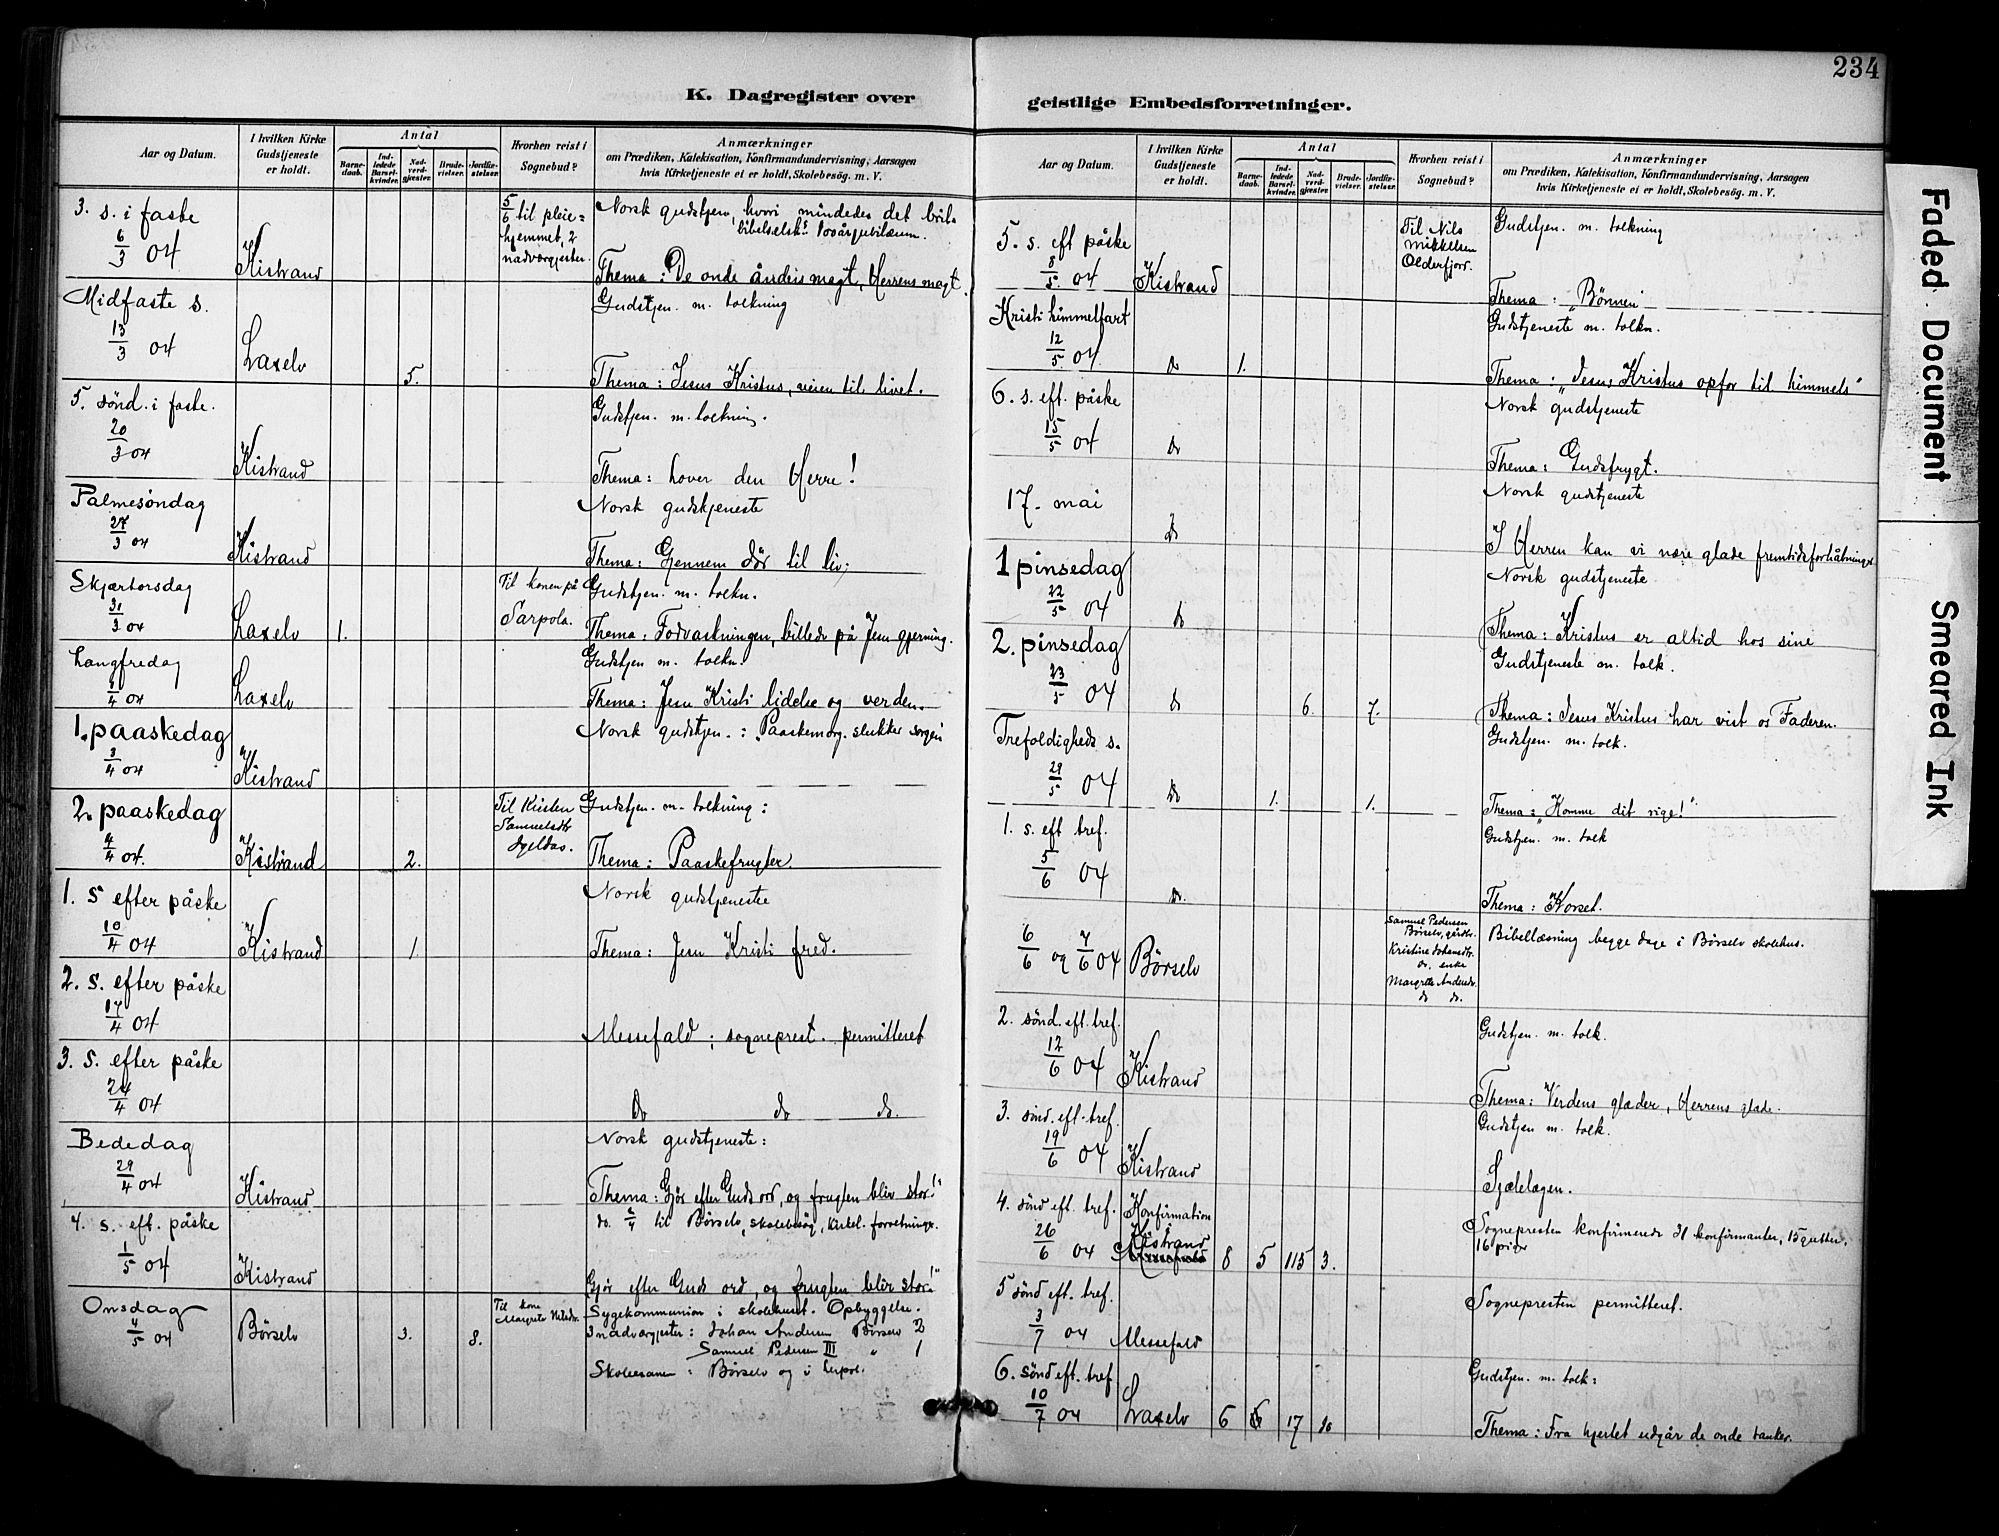 234
K. Dagregister over
Aar og Datum.
I hvilken Kirke Gudstjeneste er holdt.
Antal
Barnedaab.
Indledede Barselkvinder.
Nadverdgjester.
Brudevielser.
Jordfæstelser.
Hvorhen reist i Sognebud?
Anmærkninger
om Prædiken, Katekisation, Konfirmandundervisning, Aarsagen
hvis Kirketjeneste ei er holdt, Skolebesøg. m. V.
3. s. i faste
6/3 04
Kistrand
5/6 til pleie=
hjemmet, 2
nadvorgjester.
Norsk gudstjen, hvori mindedes det brit.
bibelselsk. 100årsjubilæum.
Thema: De onde ånders magt, Herrens magt.
Midfaste s.
13/3 04
Laxelv
5.
Gudstjen. m. tolkning
Thema: Jesus Kristus, veien til livet.
5. sönd. i faste.
20/3 04
Kistrand
Gudstjen. m. tolkning.
Thema: lover den Herre!
Palmesöndag
27/3 04
Kistrand
Norsk gudstjeneste
Thema: Gjennem död til liv.
Skjærtorsdag
31/3 04
Laxelv
1.
Til konen på
Sarpola.
Gudstjen. m. tolkn.
Thema: Fodvaskningen, billede på Jesu gjerning.
Langfredag
1/4 04
Laxelv
Gudstjen m. tolkn.
Thema: Jesu Kristi lidelse og verden.
1. paaskedag
3/4 04
Kistrand
Norsk gudstjen.: "Paaskemorg. slukker sorgen
2. paaskedag
4/4 04.
Kistrand
2.
Til Kirsten
Samuelsdtr
Gudstjen. m. tolkning:
Thema: Paaskefrugter.
1. s efter påske
10/4 04
Kistrand
1.
Norsk gudstjeneste
Thema: Jesu Kristi fred.
2. s. efter påske
17/4 04
Messefald; sogneprest. permitteret
3. s. efter påske
24/4 04
Do do do.
Bededag
29/4 04
Kistrand
Norsk gudstjeneste:
Thema: Gjör efter Guds ord, og frugten bliv stor!"
4. s. eft. påske
1/5 04
Kistrand
til Börselv, skolebesög, kirkel. forretninger.
Gjör efter Guds ord, og frugten bliv stor!"
Onsdag
4/5 04
Börselv
3.
8.
Til kone
Margrete Nilsdtr.
Sygekommunion i skolehuset. Opbyggelse.
3 nadvorgjester: Johan Andersen Börselv 2
Samuel Pedersen III " 1
Skoleeksamen: Börselv og i
geistlige Embedsforretninger.
Aar og Datum.
I hvilken Kirke Gudstjeneste er holdt.
Antal
Barnedaab.
Indledede Barselkvinder.
Nadverdgjester.
Brudevielser.
Jordfæstelser.
Hvorhen reist i Sognebud?
Anmærkninger
om Prædiken, Katekisation, Konfirmandundervisning, Aarsagen
hvis Kirketjeneste ei er holdt, Skolebesøg. m. V.
5. s. eft påske
8/5 04
Kistrand
Til Nils
Mikkelsen
Olderfjord.
Gudstjen. m. tolkning
Thema: "Bönnen"
Kristi himmelfart
12/5 04.
do
1.
Gudstjeneste m. tolkn.
Thema: "Jesus Kristus opfor til himmels"
6. s. eft. påske
15/5 04
do
Norsk gudstjeneste
Thema: Gudsfrygt.
17. mai
do
Norsk gudstjeneste
I Herren kan vi nære glade fremtidsforhåbninger
1 pinsedag
22/5 04
do
Norsk gudstjeneste
Thema: Kristus er altid hos sine
2. pinsedag
23/5 04
do
6.
7.
Gudstjeneste m. tolk.
Thema: Jesus Kristus har vist os Faderen.
Trefoldigheds s.
29/5 04
do
1.
1.
Gudstjen. m. tolk.
Thema: "Komme dit rige!"
1. s. eft tref.
5/6 04
do.
Gudstjen. m. tolk
Thema: Korset.
6/6 og 7/6 04
Börselv
Samuel Pedersen
Börselv, gårdbr.
Kristine Johansdtr.
do, enke
Margrete Andersdr.
do do.
Bibellæsning begge dage i Börselv skolehus.
2. sönd. eft. tref.
12/6 04
Kistrand
Gudstjen. m. tolk.
Thema: Verdens glæder, Herrens glæde.
3. sönd. eft. tref.
19/6 04
Kistrand
Gudstjen m. tolk.
Sjælelægen.
4. sönd eft. tref.
26/6 04
Konfirmation
i
Kistrand
8
5
115
3.
Sognepresten konfirmerede 31 konfirmanter, 15 gutter,
16 piger
5 sönd eft. tref.
3/7 04
Messefald
Sognepresten permitteret.
6. sönd eft. tref
10/7 04
Laxelv
6
6
17
do
Gudstjen. m. tolk:
Thema: Fra hjertet udgår de onde tanker.
Faded Document
Smeared Ink